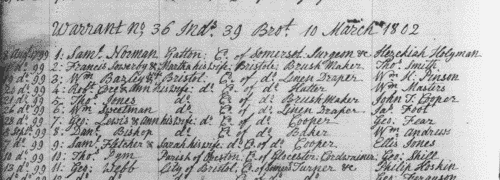 Warrant No. 36 Ind. 39 Brot. 10 March 1802
99 1: Saml. Norman Yatton Co. of Somerset Surgeon & Hezekiah Holyman
do. 99 2: Francis & Martha his wife Bristol: Brush Maker Thos. Smith
do. 99 3: Wm. Bristol Co. of do. Linen Draper Wm. K. Pinson
do. 99 4: Robt. & Ann his wife do. Co. of do. Hatter Wm. Masters
do. 99 5: Thos. Jones do. Co. of do. Brush Maker John T. Cooper
do. 99 6: Wm. do. Co. of do. Linen Draper Jas. Foot
do. 99 7: Geo: Lewis & Ann his wife do. Co. of do. Cooper Geo: Fear
Sept. 99 8: Danl. Bishop do. Co. of do. Baker Wm. Andrews
do. 99 9: Saml. Fletcher & Sarah his wife do. Co. of do. Cooper Ellis Jones
do. 99 10: Thos. Pym Parish of Co. of Glocester Cordwainer Geo: Shill
do. 99 11: Geo: Webb City of Bristol, Co. of same Turner & Philip Hoskin
Geo: Ferguson